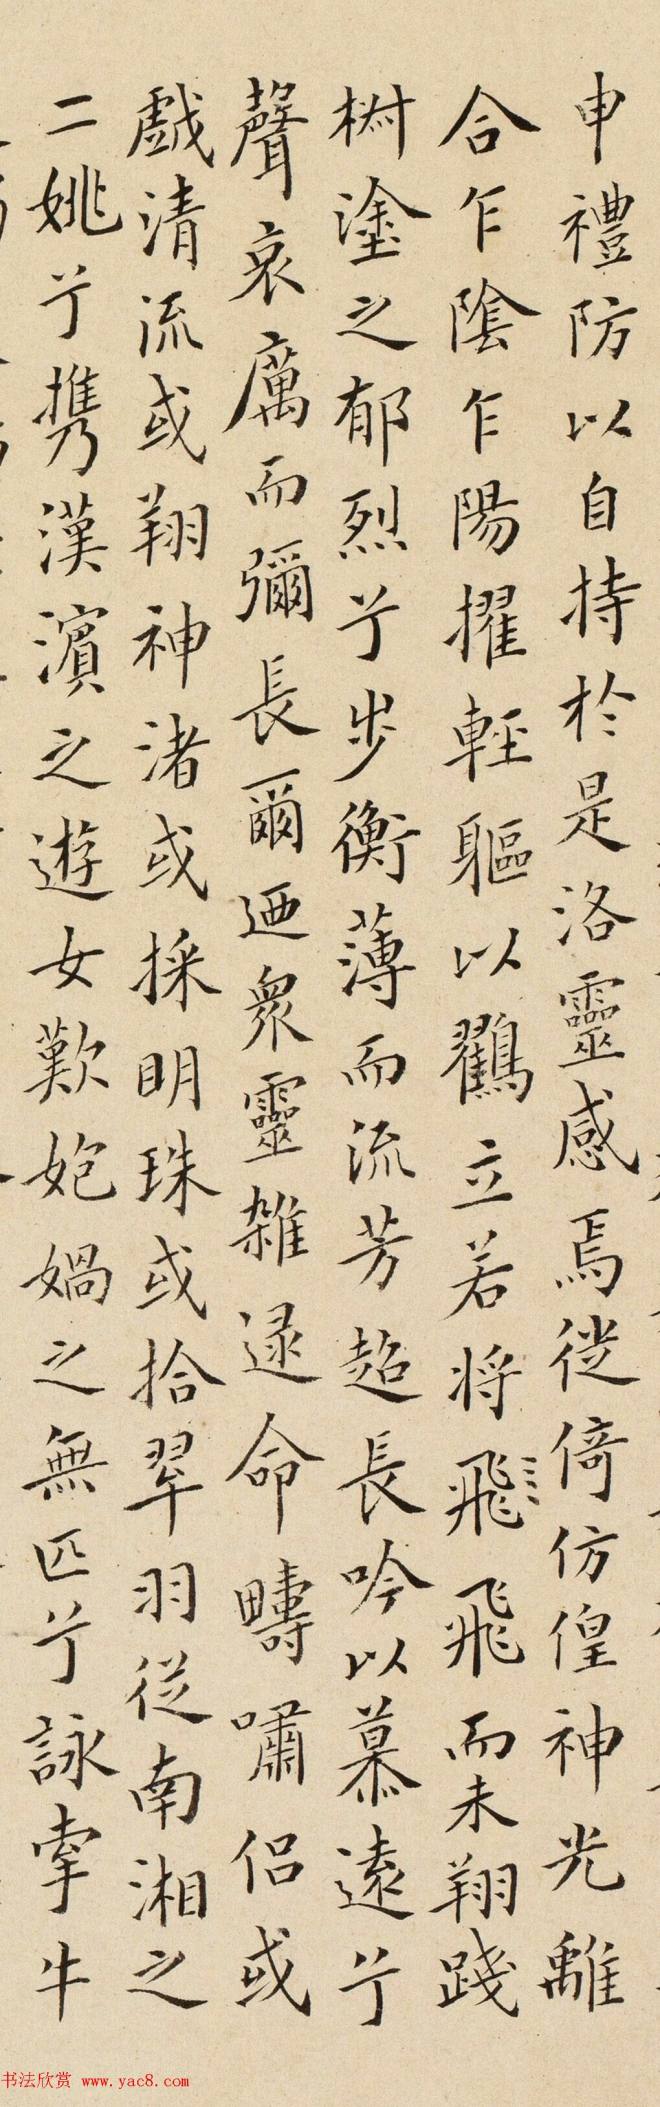 申禮防以自持於是洛靈感焉徙倚仿偟神光離
合乍陰乍陽擢輕軀以鸛立若將飛飛而未翔踐
椒塗之郁烈兮步衡薄而流芳超長吟以慕遠兮
聲哀厲而彌長爾迺衆靈雜遝命疇嘯侶或
戲清流或翔神渚或採明珠或拾翠羽從南湘之
二姚兮攜漢濱之遊女歎㚿媧之無匹兮詠牽牛
书法欣赏 www.yac8.com